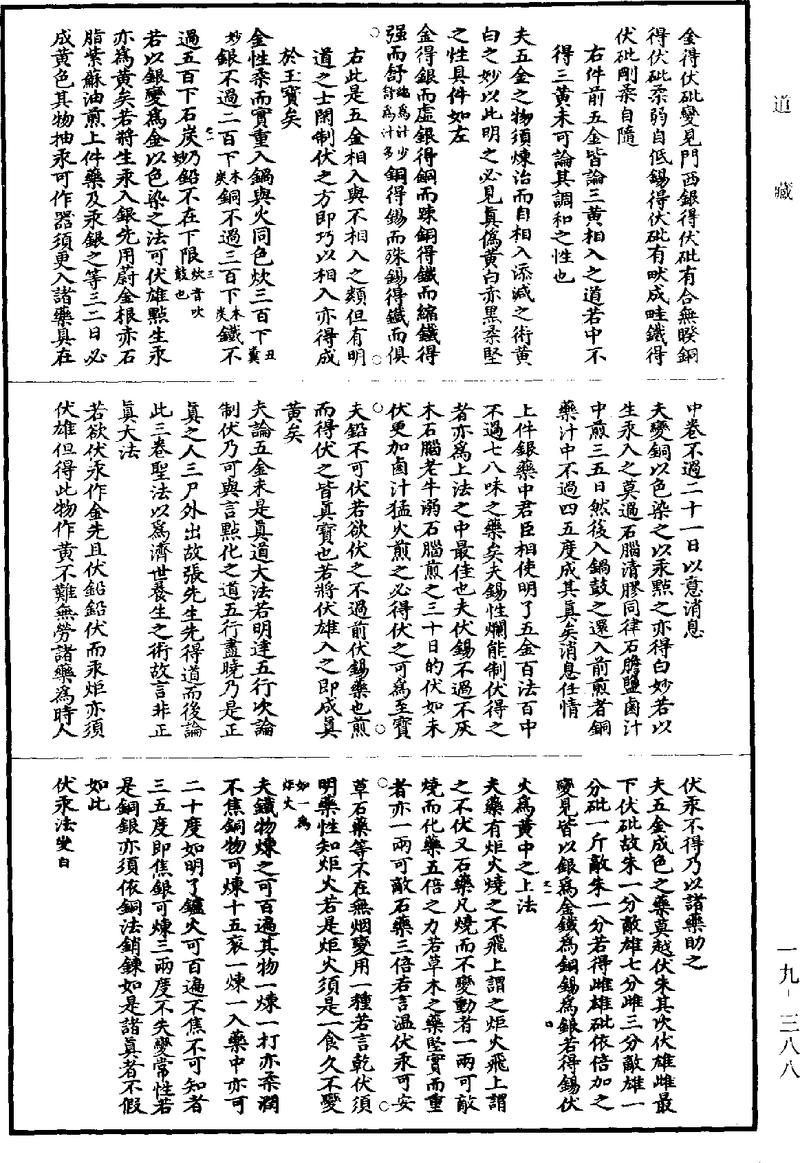 道藏
金得伏砒變見門西銀得伏砒有合無暌銅
得伏砒柔弱自低錫得伏砒有畎成畦鐵得
伏砒剛柔自隨
右件前五金皆論三黃相入之道若中不
得三黃未可論其調和之性也
夫五金之物須煉治而自相入添減之術黃
白之妙以此明之必見真偽黃白亦黑柔堅
之性具件如左
金得銀而虛銀得銅而踈銅得鐵而縮鐵得
强而舒縮為計少舒為計多銅得錫而殊錫得鐵而俱
右此是五金相入與不相入之類但有明
道之士閑制伏之方即巧以相入亦得成
於玉寶矣
金性柔而實重入鍋與火同色炊三百下糞丑
妙銀不過二百下木炭銅不過三百下木炭鐵不
過五百下石炭乃妙鉛不在下限炊音吹鼓也
若以銀變為金以色染之法可伏雄點生汞
亦為黃矣若將生汞入銀先用蔚金根赤石
脂紫蘇油煎上件藥及汞銀之等三二日必
成黃色其物抽汞可作器須更入諸藥具在
中卷不過二十一日以意消息
夫變銅以色染之以汞點之亦得白妙若以
生汞入之莫過石腦清膠同律石膽鹽鹵汁
中煎三五日然後入鍋鼓之還入前煎者銅
藥汁中不過四五度成其真矣消息任情
上件銀藥中君臣相使明了五金百法百中
不過七八味之藥矣夫錫性爛能制伏得之
者亦為上法之中最佳也夫伏錫不過不灰
木石腦老牛溺石腦煎之三十日的伏如未
伏更加鹵汁猛火煎之必得伏之可為至寶
夫鉛不可伏若欲伏之不過前伏錫藥也煎
而得伏之皆真寶也若將伏雄入之即成真
黃矣
夫論五金未是真道大法若明達五行次論
制伏乃可與言點化之道五行盡曉乃是正
真之人三尸外出故張先生先得道而後論
此三卷聖法以為濟世養生之術故言非正
真大法
若欲伏汞作金先且伏鉛鉛伏而汞炬亦須
伏雄但得此物作黃不難無勞諸藥為時人
伏汞不得乃以諸藥助之
夫五金成色之藥莫越伏朱其次伏雄雌最
下伏砒故朱一分敵雄七分雌三分敵雄一
分砒一斤敵朱一分若得雌雄砒依倍加之
變見皆以銀為金鐵為銅錫為銀若得錫伏
火為黃中之上法
夫藥有炬火燒之不飛上謂之炬火飛上謂
之不伏又石藥凡燒而不變動者一兩可敵
燒而化藥五倍之力若草木之藥堅實而重
者亦一兩可敵石藥三倍若言溫伏汞可安
草石藥等不在無烟變用一種若言乾伏須
明藥性知炬火若是炬火須是一食久不變
如一為炬火
夫鐵物煉之可百遍其物一煉一打亦柔潤
不焦銅物可煉十五衮一煉一入藥中亦可
二十度如明了鑪火可百遍不焦不可知者
三五度即焦銀可煉三兩度不失變常性若
是銅銀亦須依銅法銷鍊如是諸真者不假
如此
伏汞法变白
一九－三八八